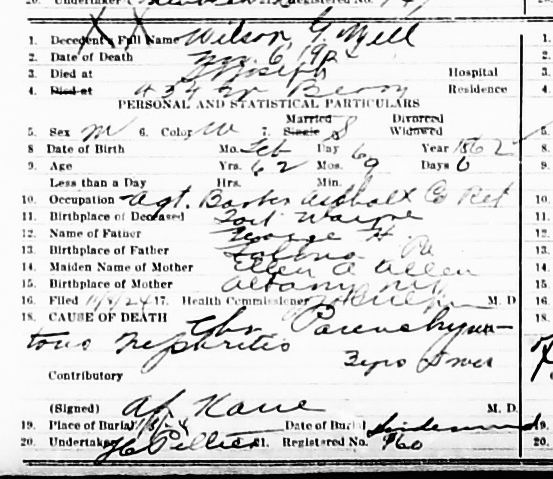 20. Undertaker Registered No.
1. Decedent's Full Name Wilson G. Mell
2. Date of Death Nov. 6, 192
3. Died at St Joseph Hospital
4. Died at 434 W Berry Residence
PERSONAL AND STATISTICAL PARTICULARS
5. Sex M 6. Color W 7. Married Single S Divorced Widowed
8 Date of Birth Mo. Feb Day 6 Year 1862
9. Age Yrs. 62 Mos. 9 Days 0
Less than a Day Hrs. Min.
10. Occupation Agt. Barber Asphalt Co Ret
11. Birthplace of Deceased Fort Wayne
12. Name of Father George H.
13. Birthplace of Father Pa
14. Maiden Name of Mother Ellen A Allen
15. Birthplace of Mother Albany NY
16. Filed 11/8/24 17. Health Commissioner M. D
18. CAUSE OF DEATH Chr Parenchyma-
tous Nephritis
Contributory
(Signed) Kane M. D.
19. Place of Burial Date of Burial Lindenwood
20. Undertaker Peltier 21. Registered No. 960